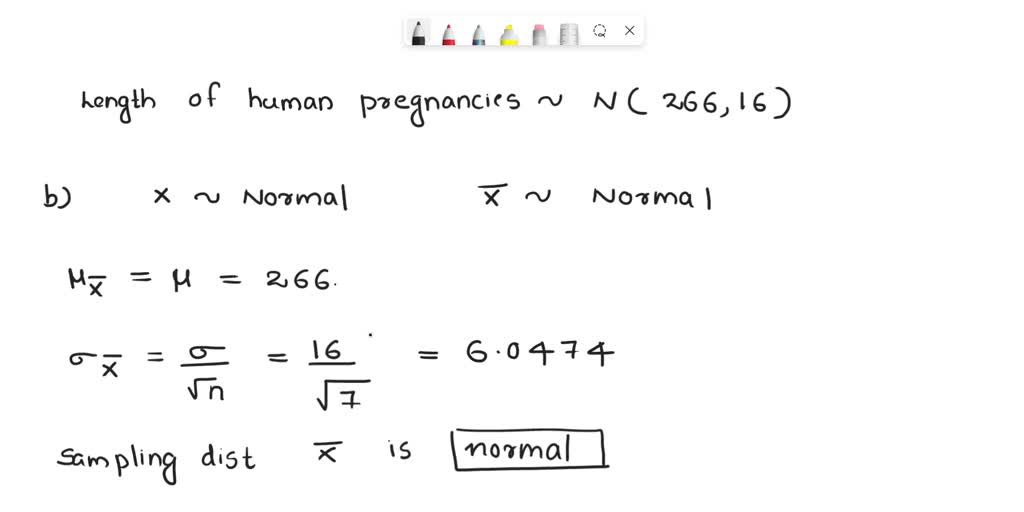 Length of human pregnancies ~ N(266,16)
b) x ~ Normal x̅ ~ Normal
μx̅ = μ = 266.
σx̅ = σ/√n = 16/√7 = 6.0474
Sampling dist x̅ is normal